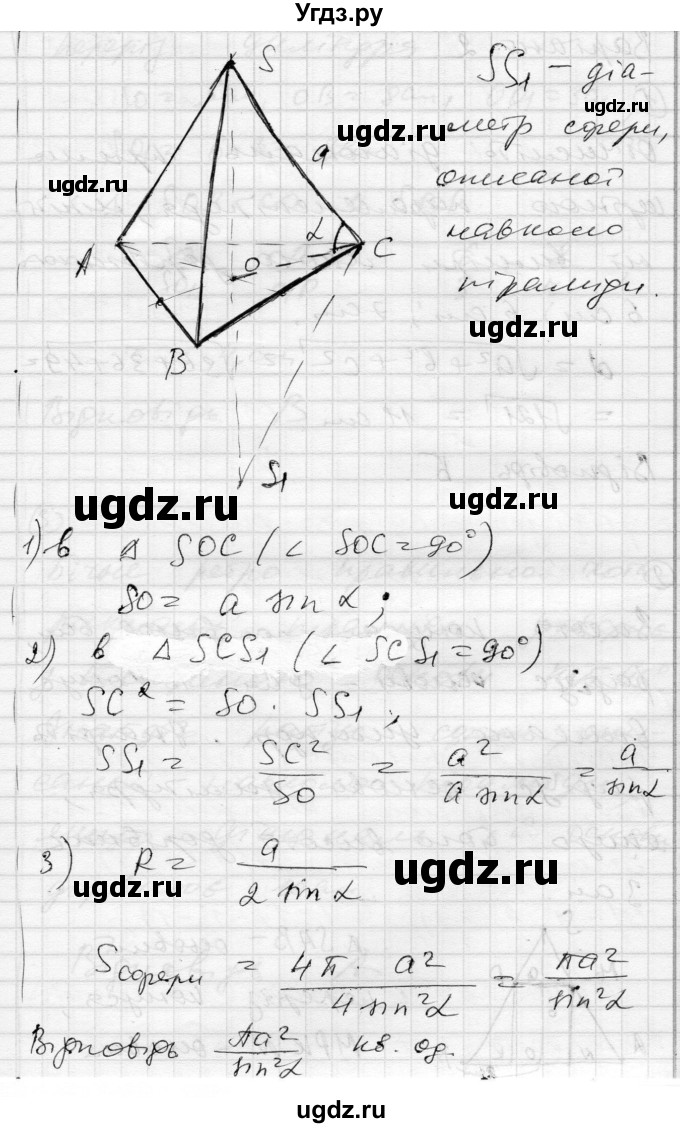 Угдз.ру
SS₁ – діа-
метр сфери,
описаної
навколо
піраміди.
ugdz.ru
ugdz.ru
ugdz.ru
ugdz.ru
S
a
α
A
O
C
B
S₁
ugdz.ru
ugdz.ru
1) в △ SOC (∠ SOC = 90°)
SO = a sin α;
2) в △ SCS₁ (∠ SCS₁ = 90°)
SC² = SO · SS₁;
SS₁ = SC²/SO = a²/(a sin α) = a/sin α
3) R = a/(2 sin α)
ugdz.ru
ugdz.ru
Sсфери = 4π · a²/(4 sin²α) = πa²/sin²α
Відповідь πa²/sin²α кв. од.
ugdz.ru